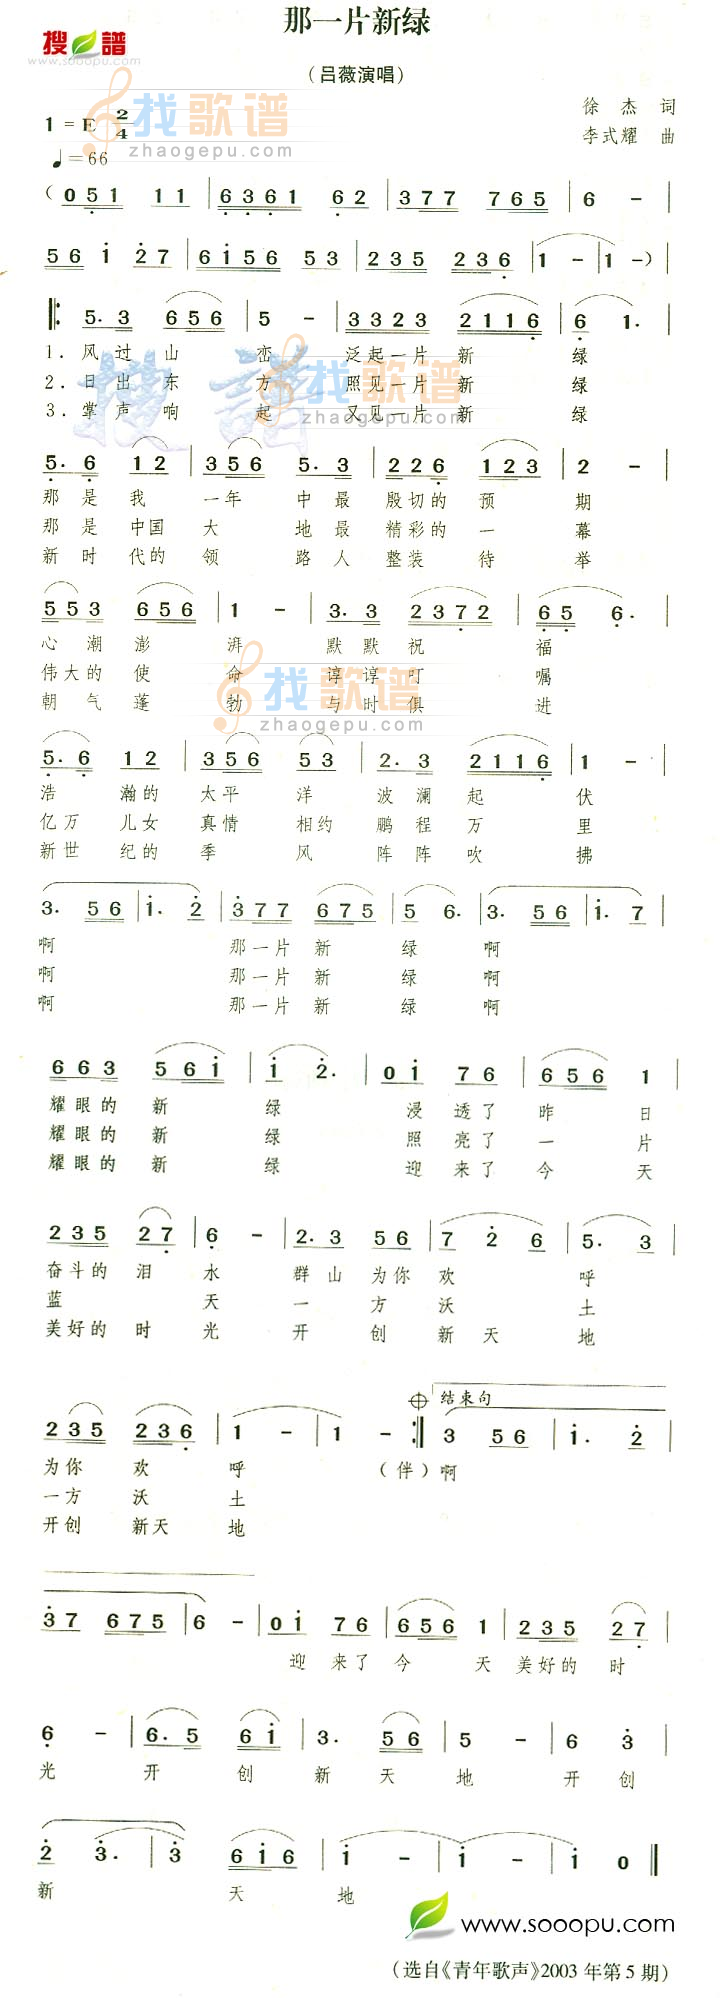 那一片新绿
搜谱
www.sooopu.com
（吕薇演唱）
徐杰 词
1=E 2/4 找歌谱
李式耀 曲
♩=66 zhaogepu.com
（0 5 1 1 1 | 6 3 6 1 6 2 | 3 7 7 7 6 5 | 6 - |
5 6 i 2 7 | 6 i 5 6 5 3 | 2 3 5 2 3 6 | 1 - | 1 -）|
‖: 5. 3 6 5 6 | 5 - | 3 3 2 3 2 1 1 6 | 6 1. |
1．风过山 峦 泛起一片 新 绿
2．日出东 方 照见一片 新 绿
3．掌声响 起 又见一片 新 绿
搜谱 找歌谱
zhaogepu.com
5. 6 1 2 | 3 5 6 5. 3 | 2 2 6 1 2 3 | 2 - |
那是我 一年 中最 殷切的 预 期
那是中国大 地最 精彩的 一 幕
新时代的领 路人 整装 待 举
5 5 3 6 5 6 | 1 - | 3. 3 2 3 7 2 | 6 5 6. |
心潮澎 湃 默默祝 福
伟大的使 命 谆谆叮 嘱
朝气蓬 勃 与时俱 进
找歌谱
zhaogepu.com
5. 6 1 2 | 3 5 6 5 3 | 2. 3 2 1 1 6 | 1 - |
浩 瀚的 太平 洋 波澜起 伏
亿万 儿女 真情 相约 鹏程万 里
新世 纪的 季 风 阵阵吹 拂
3. 5 6 | i. 2 | 3 7 7 6 7 5 | 5 6. | 3. 5 6 | i. 7 |
啊 那一片 新 绿 啊
啊 那一片 新 绿 啊
啊 那一片 新 绿 啊
6 6 3 5 6 i | i 2. | 0 i 7 6 | 6 5 6 1 |
耀眼的 新 绿 浸透了 昨 日
耀眼的 新 绿 照亮了 一 片
耀眼的 新 绿 迎来了 今 天
2 3 5 2 7 | 6 - | 2. 3 5 6 | 7 2 6 | 5. 3 |
奋斗的 泪 水 群山 为你 欢 呼
蓝 天 一 方 沃 土
美好的 时 光 开 创 新天 地
结束句
2 3 5 2 3 6 | 1 - | 1 - :‖ 3 5 6 | i. 2 |
为你 欢 呼 （伴）啊
一方 沃 土
开创 新天 地
3 7 6 7 5 | 6 - | 0 i 7 6 | 6 5 6 1 | 2 3 5 2 7 |
迎来了 今 天 美好的 时
6 - | 6. 5 6 i | 3. 5 6 | 5 - | 6 3 |
光 开 创 新 天 地 开创
2 3. | 3 | 6 i 6 | i - | i - | i 0 ‖
新 天 地
www.sooopu.com
（选自《青年歌声》2003 年第 5 期）